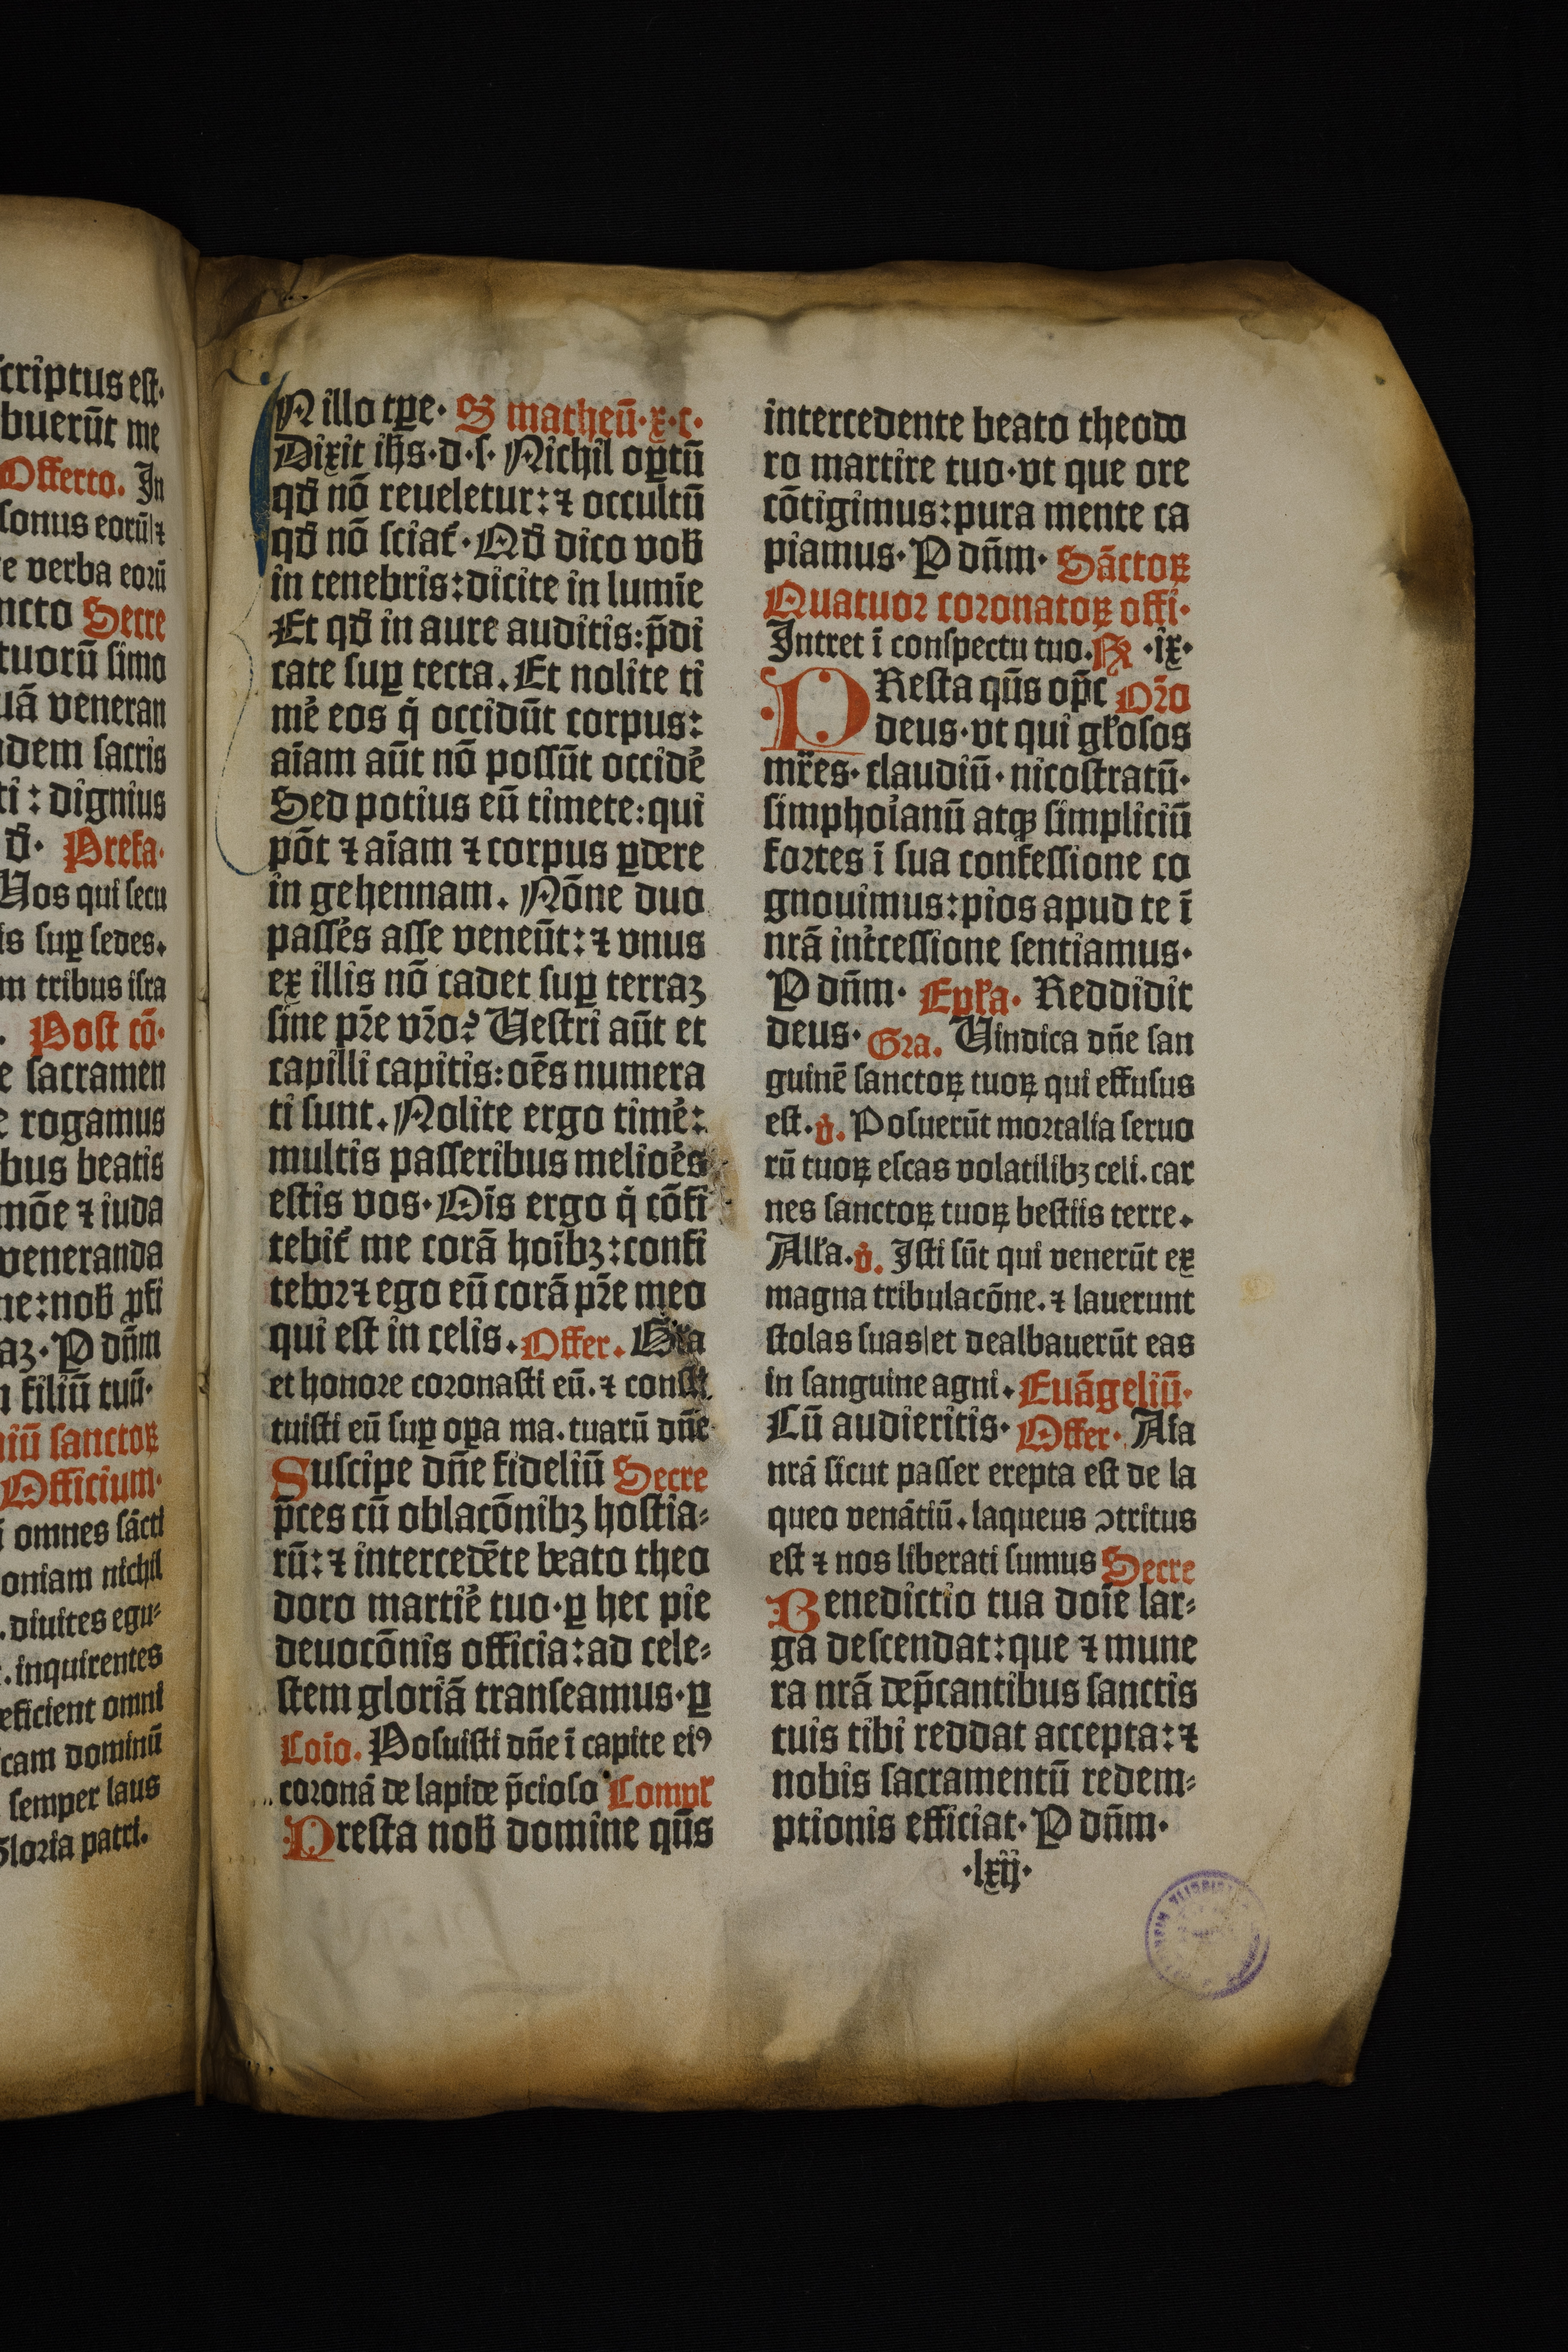 scriptus est·
buerūt me
Offerto. In
sonus eorū|⁊
e verba eorū
ncto Secre
tuorū simo
uā veneran
dem sacris
ti : dignius
đ· Prefa·
Uos qui secu
is suꝑ sedes.
m tribus isra
. Post cō·
e sacramen
e rogamus
bus beatis
mōe ⁊ iuda
veneranda
ne:nob̄ ꝓfi
aꝫ·P dn̄m
n filiū tuū·
niū sanctoꝝ
Officium·
i omnes sācti
oniam nichil
. diuites egu⸗
. inquirentes
eficient omni
cam dominū
semper laus
Gloria patri.
IN illo tꝑe· S matheū·x·c·
Dixit ih̄s·d·s· Nichil oꝑtū
qđ nō reueletur:⁊ occultū
qđ nō sciat̄·Qđ dico vob̄
in tenebris:dicite in lumīe
Et qđ in aure auditis:p̄di
cate suꝑ tecta. Et nolite ti
mē eos q̇ occidūt corpus:
aīam aūt nō possūt occidē
Sed potius eū timete:qui
pōt ⁊ aīam ⁊ corpus ꝑdere
in gehennam. Nōne duo
passēs asse veneūt:⁊ vnus
ex illis nō cadet suꝑ terraꝫ
sine pr̄e vr̄o? Uestri aūt et
capilli capitis:oēs numera
ti sunt. Nolite ergo timē:
multis passeribus melioēs
estis vos·Oīs ergo q̇ cōfi
tebit̄ me corā hoībꝫ:confi
tebor⁊ ego eū corā pr̄e meo
qui est in celis. Offer. Gl̄a
et honore coronasti eū.⁊ consti
tuisti eū suꝑ oꝑa ma.tuarū dn̄e
Suscipe dn̄e fideliū Secre
p̄ces cū oblacōnibꝫ hostia⸗
rū:⁊ intercedēte beato theo
doro martiē tuo·ꝑ hec pie
deuocōnis officia:ad cele⸗
stem gloriā transeamus·ꝑ
Coīo. Posuisti dn̄e ī capite eiꝰ
coronā de lapide p̄cioso Compl̄
Presta nob̄ domine qūs
intercedente beato theodo
ro martire tuo·vt que ore
cōtigimus:pura mente ca
piamus·P dn̄m· Sāctoꝝ
Quatuor coronatoꝝ offi·
Intret ī conspectu tuo. Pꝶ ·ix·
PResta qūs op̄c Or̄o
deus·vt qui gl̄osos
mr̄es·claudiū·nicostratū·
simphoīanū atqꝫ simpliciū
fortes ī sua confessione co
gnouimus:pios apud te ī
nrā int̄cessione sentiamus·
P dn̄m· Epl̄a· Reddidit
deus· Gra. Uindica dn̄e san
guinē sanctoꝝ tuoꝝ qui effusus
est. v̇. Posuerūt mortalia seruo
rū tuoꝝ escas volatilibꝫ celi.car
nes sanctoꝝ tuoꝝ bestiis terre.
All̄a. v̇. Isti sūt qui venerūt ex
magna tribulacōne.⁊ lauerunt
stolas suas|et dealbauerūt eas
in sanguine agni. Euāgeliū·
Cū audieritis· Offer· Aīa
nrā sicut passer erepta est de la
queo venātiū.laqueus ɔtritus
est ⁊ nos liberati sumus Secre
Benedictio tua doīe lar⸗
ga descendat:que ⁊ mune
ra nrā dep̄cantibus sanctis
tuis tibi reddat accepta:⁊
nobis sacramentū redem⸗
ptionis efficiat·P dn̄m·
·lxij·